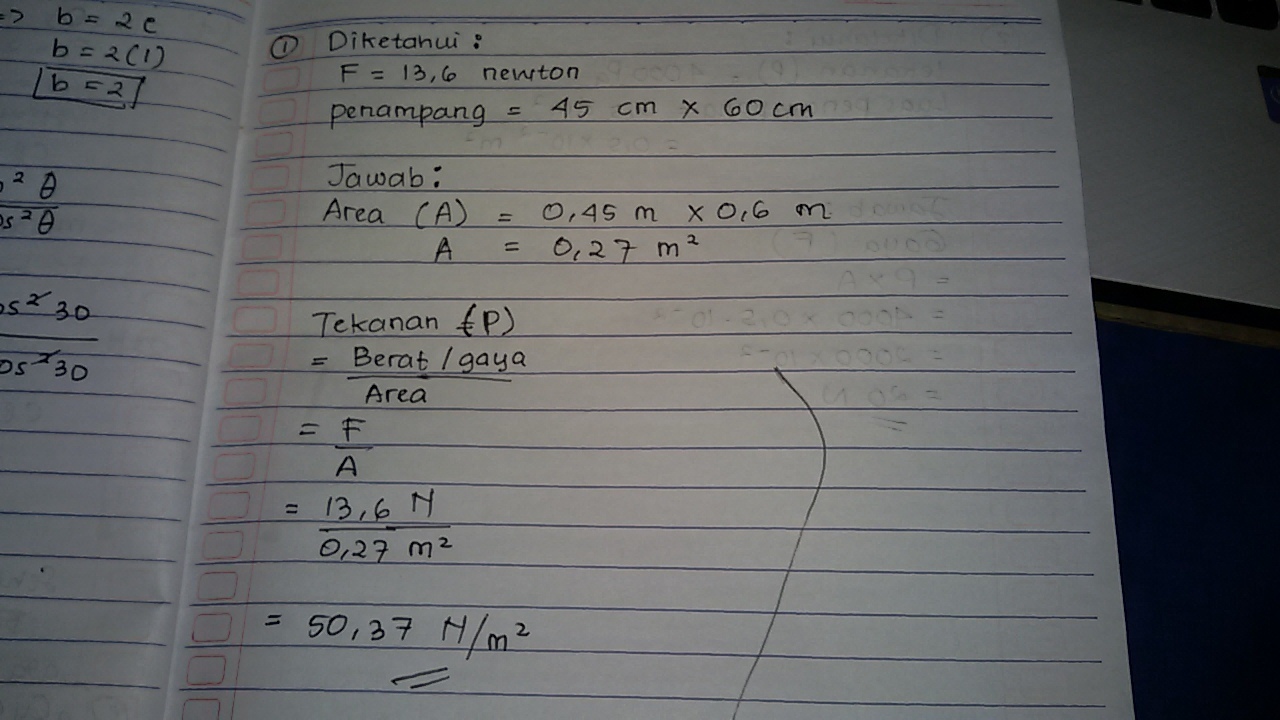 => b = 2c
b = 2(1)
b = 2
² θ
os² θ
os² 30
os² 30
① Diketahui :
F = 13,6 newton
penampang = 45 cm x 60 cm
Jawab :
Area (A) = 0,45 m x 0,6 m
A = 0,27 m²
Tekanan (P)
= Berat / gaya
Area
= F
A
= 13,6 N
0,27 m²
= 50,37 N/m²